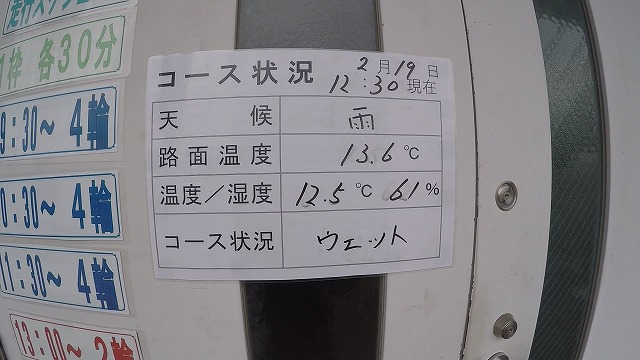 1枠 各30分
9:30〜 4輪
0:30〜 4輪
11:30〜 4輪
13:00〜 2輪
コース状況 2月19日
12:30現在
天候 雨
路面温度 13.6℃
温度／湿度 12.5℃ 61%
コース状況 ウェット